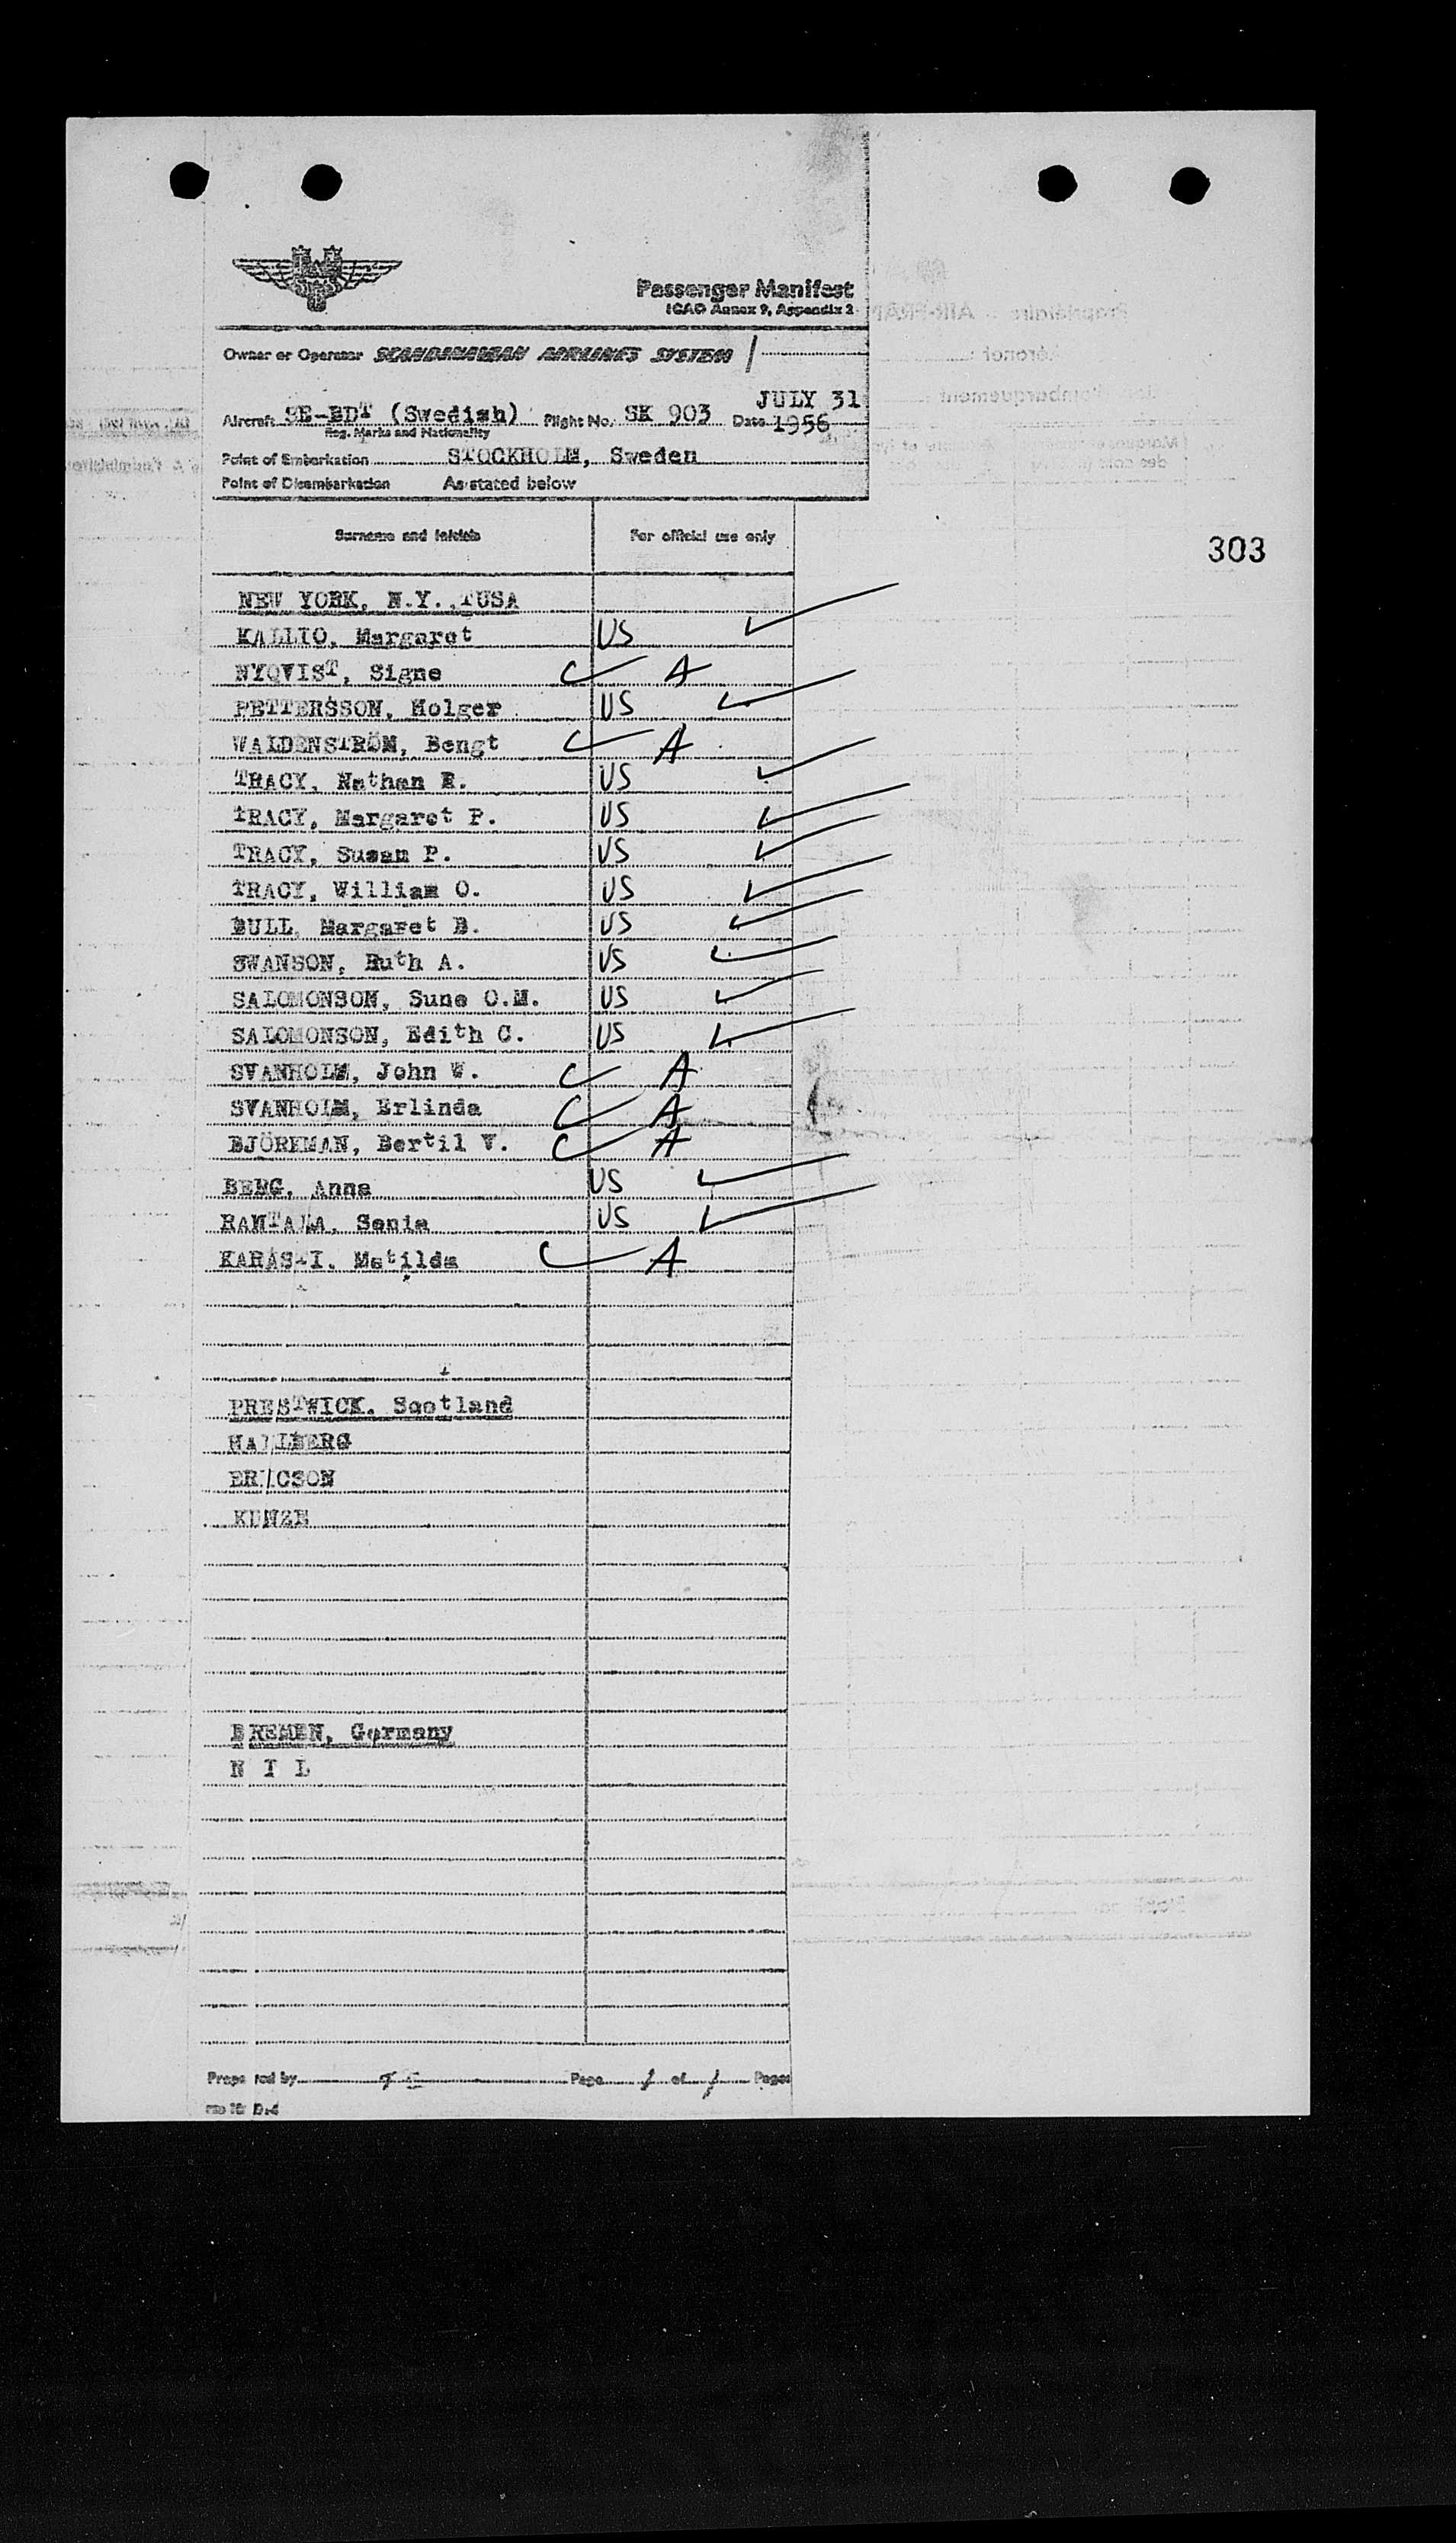 Passenger Manifest
ICAO Annex 9, Appendix 2
Owner or Operator SCANDINAVIAN AIRLINES SYSTEM
JULY 31
Aircraft SE-BDT (Swedish) Flight No. SK 903 Date 1956
Reg. Marks and Nationality
Point of Embarkation STOCKHOLM, Sweden
Point of Disembarkation As stated below
Surname and initials For official use only
303
NEW YORK, N.Y., USA
KALLIO, Margaret US
NYQVIST, Signe A
PETTERSSON, Holger US
WALDENSTRÖM, Bengt A
TRACY, Nathan E. US
TRACY, Margaret P. US
TRACY, Susan P. US
TRACY, William O. US
BULL, Margaret B. US
SWANSON, Ruth A. US
SALOMONSON, Sune O.M. US
SALOMONSON, Edith C. US
SVANHOLM, John W. A
SVANHOLM, Erlinda A
BJÖRKMAN, Bertil V. A
BERG, Anna US
RANTALA, Senia US
Matilda A
PRESTWICK. Scotland
HALLBERG
ERICSON
KUNZE
BREMEN, Germany
N I L
Prepared by Page 1 of 1 Pages